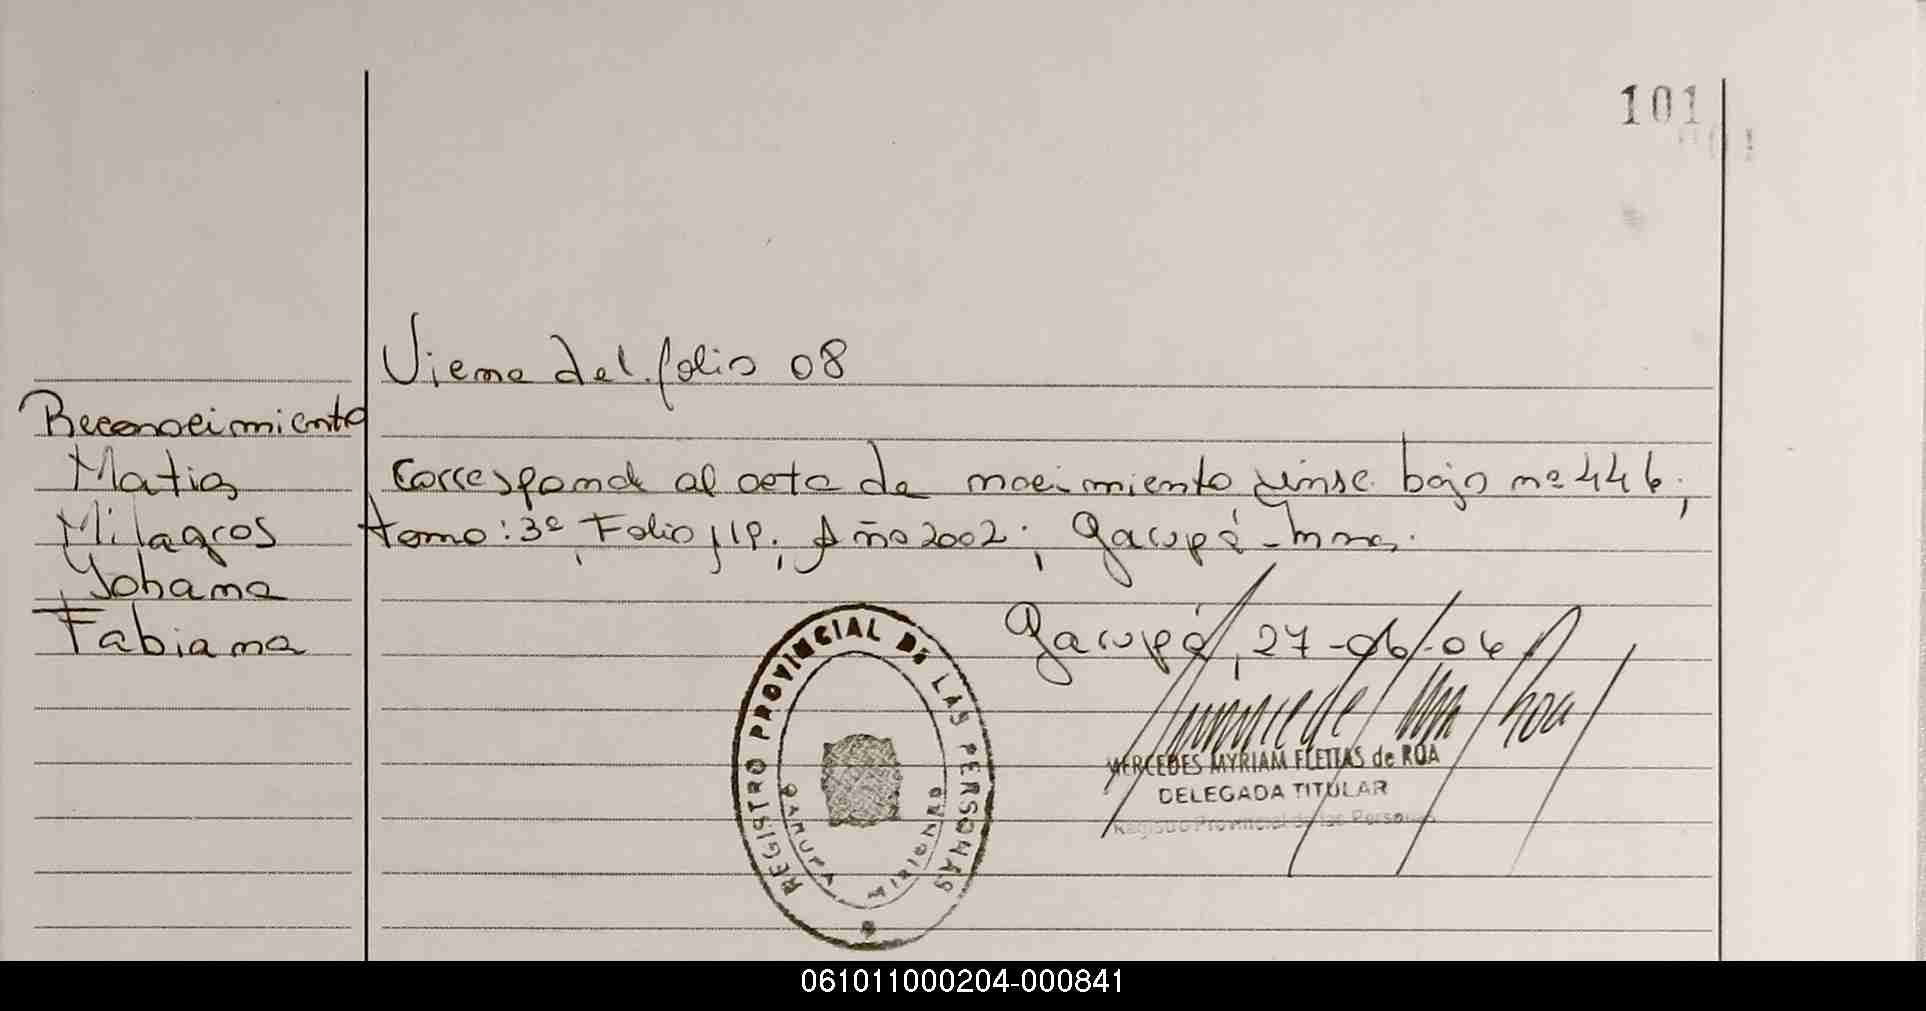 101
Viene del folio 08
Reconocimiento
Matias
Milagros
Yohana
Fabiana
Corresponde al acta de nacimiento insc. bajo nº 446;
tomo: 3º, Folio 119, Año 2002; Garupá - Mnes.
Garupá, 27-06-06
REGISTRO PROVINCIAL DE LAS PERSONAS
GARUPA MISIONES
MERCEDES MYRIAM FLEITAS de ROA
DELEGADA TITULAR
Registro Provincial de las Personas
061011000204-000841